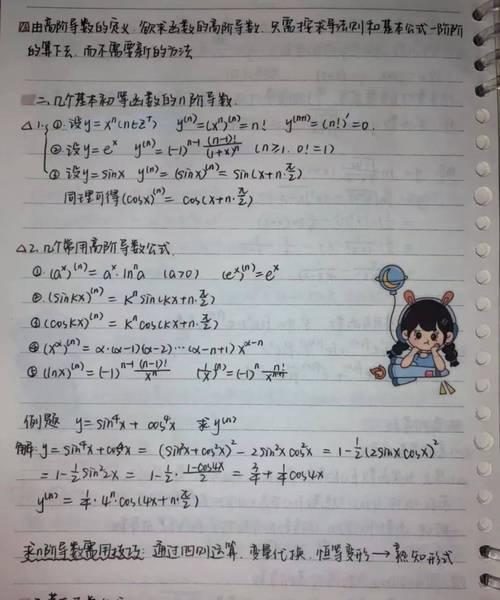 由高阶导数的定义,欲求函数的高阶导数,只需按求导法则和基本公式一阶阶
的算下去,而不需要新的方法
二、几个基本初等函数的n阶导数.
△1. ①.设y=xⁿ(n∈Z⁺) y⁽ⁿ⁾=(xⁿ)⁽ⁿ⁾=n! y⁽ⁿ⁺¹⁾=(n!)'=0.
②.设y=eˣ y⁽ⁿ⁾=(-1)ⁿ⁻¹ (n-1)!/(1+x)ⁿ (n≥1, 0!=1)
③.设y=sinx y⁽ⁿ⁾=(sinx)⁽ⁿ⁾=sin(x+n·π/2)
同理可得(cosx)⁽ⁿ⁾=cos(x+n·π/2)
△2.几个常用高阶导数公式.
①.(aˣ)⁽ⁿ⁾=aˣ·lnⁿa (a>0) (eˣ)⁽ⁿ⁾=eˣ
②.(sinkx)⁽ⁿ⁾=kⁿsin(kx+n·π/2)
③(coskx)⁽ⁿ⁾=kⁿcos(kx+n·π/2)
④(x^α)⁽ⁿ⁾=α·(α-1)(α-2)…(α-n+1)x^(α-n)
⑤(lnx)⁽ⁿ⁾=(-1)ⁿ⁻¹ (n-1)!/xⁿ (1/x)⁽ⁿ⁾=(-1)ⁿ n!/xⁿ⁺¹
例题 y=sin⁴x+cos⁴x 求y⁽ⁿ⁾
解:y=sin⁴x+cos⁴x=(sin²x+cos²x)²-2sin²xcos²x=1-1/2(2sinxcosx)²
=1-1/2sin²2x=1-1/2·(1-cos4x)/2=3/4+1/4cos4x
y⁽ⁿ⁾=1/4·4ⁿ·cos(4x+n·π/2)
求n阶导数需用技巧:通过四则运算,变量代换,恒等变形→熟知形式